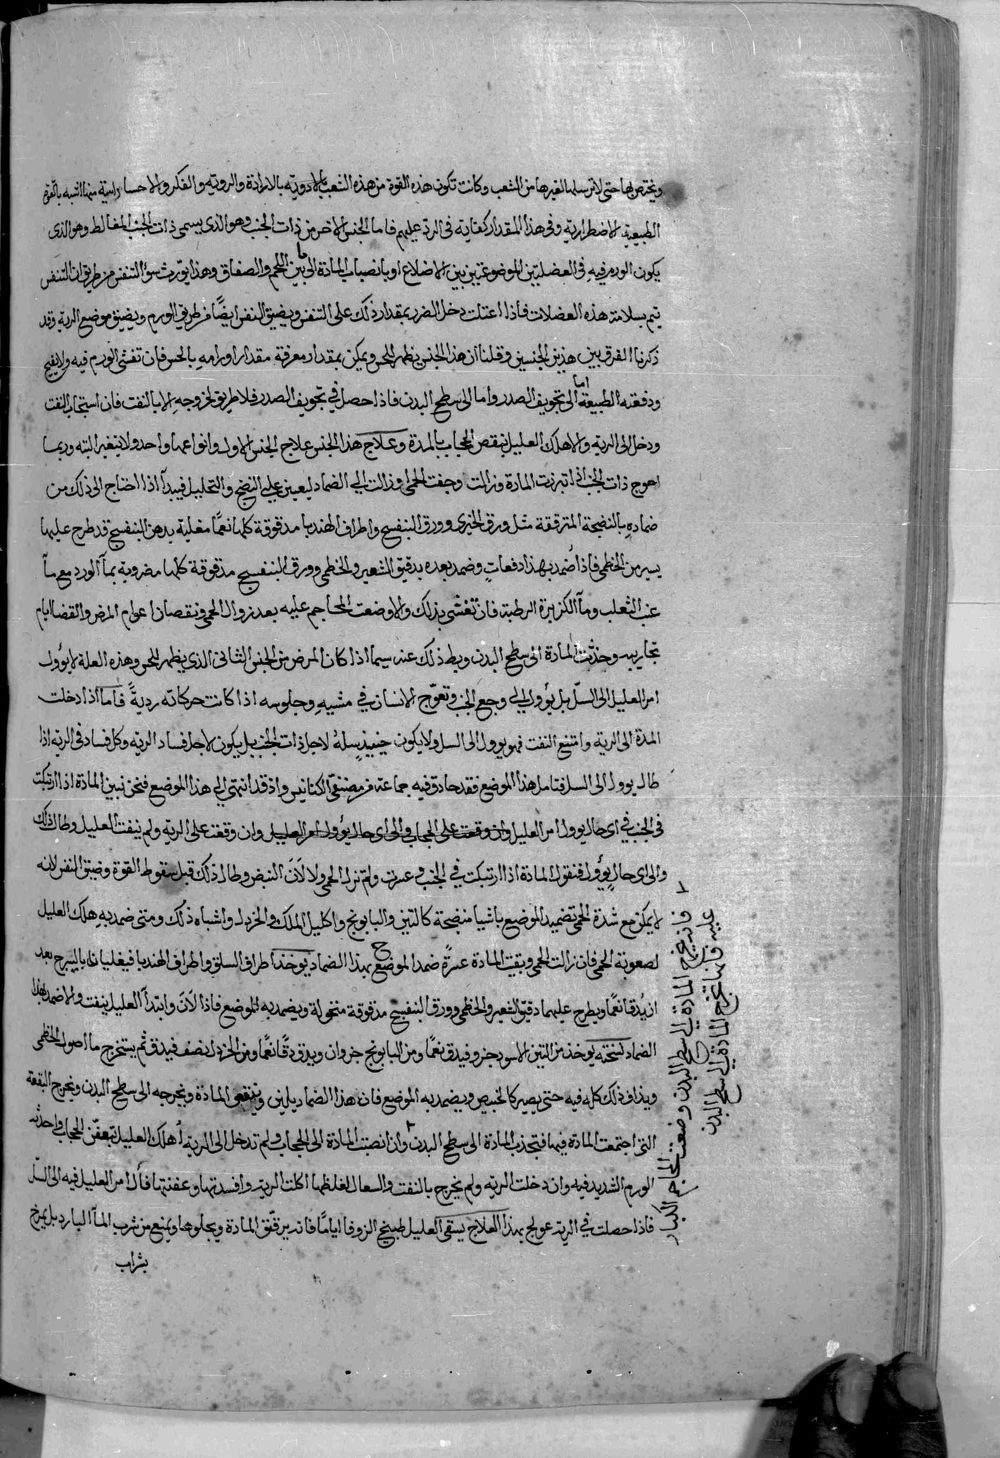 ويحترص لها حتى لا ترسلها لغيرها من الشعب وكانت تكون هذه القوة من هذه الشعب بالارادة والروية والفكر والاحسا
الطبيعية الاضطرارية وفي هذا المقدار كفاية في الرد عليهم فاما الجنس الاخر من ذات الجنب وهو الذي يسمى ذات الجنب المغالط وهو الذي
يكون الورم فيه في العضلتين الموضوعتين بين الاضلاع او بانصباب المادة الى ما بين اللحم والصفاق وهذا يورث سوء التنفس من طريق ان التنفس
يتم بسلامة هذه العضلات فاذا اعتلت دخل الضرر بمقدار ذلك على التنفس ويضيق النفس ايضًا من طريق الورم ويضيق موضع الرية وقد
ذكرنا الفرق بين هذين الجنسين وقلنا ان هذا الجنس يظهر للحس ويمكن بمقدار معرفة مقدار اورامه بالحس فان تفشى الورم فيه ولا يفتح
ودفعته الطبيعة اما الى تجويف الصدر واما الى سطح البدن فاذا حصل في تجويف الصدر فلا طريق لخروجه الا بالنفث فان استجاب النفث
ودخل الى الرية والا هلك العليل بنقص الحجاب بالمدة وعلاج هذا الجنس علاج الجنس الاول وانواعهما واحد ولا يتغير البته وربما
احوج ذات الجنب اذا تبزنت المادة وزالت وجفت الحمى وزالت الى الضماد ليعين على النضج والتحليل فيبدأ اذا احتاج الى ذلك من
ضماده بالنضجة المترققة مثل ورق الخيري وورق البنفسج واطراف الهندبا مدقوقة كلها نعمًا مغلية بدهن البنفسج قد طرح عليها
يسير من الخطمي فاذا ضمد بهذا دفعات وضمد بعده بدقيق الشعير والخطمي وورق البنفسج مدقوقة كلها مضروبة بماء الورد مع ماء
عنب الثعلب وماء الكزبرة الرطبة فان تفشى بذلك والا وضعت المحاجم عليه بعد زوال الحمى ونقصان اعوام المرض وانقضا ايام
تجاريبه وجذبت المادة الى سطح البدن وبط ذلك عنه سيما اذا كان المرض من الجنس الثاني الذي يظهر للحس وهذه العلة لا يؤول
امر العليل الى السل بل يؤول الى وجع الجنب وتعوج الانسان في مشيه وجلوسه اذا كانت حركاته ردية فاما اذا دخلت
المدة الى الرية وامتنع النفث فهو يؤول الى السل ولا يكون حينيذ سله لاجل ذات الجنب بل يكون لاجل فساد الرية وكل فساد في الرية اذا
طال يوول الى السل فتامل هذا الموضع فقد حار فيه جماعة من مصنفي الكنانيس واذ قد انتهى الى هذا الموضع فنحن نبين المادة اذا ارتبكت
في الجنب في اي حال يوول امر العليل وان وقعت على الحجاب والى اي حال يؤول امر العليل وان وقعت على الرية ولم ينفث العليل وطال ذلك
والى اي حال يؤول فنقول المادة اذا ارتبكت في الجنب وعسرت ولم تزل الحمى ولا لان النبض وطال ذلك قبل سقوط القوة وضيق النفس لانه
لا يمكن مع شدة الحمى تضميد الموضع باشيا منضجة كالتين والبابونج واكليل الملك والخردل واشباه ذلك ومتى ضمد به هلك العليل
لصعوبة الحمى فان زالت الحمى وبقيت المادة عسرة ضمد الموضع بهذا الضماد يوخذ اطراف السلق واطراف الهندبا فيغليانها بالشيرج بعد
ان يدقا نعمًا ويطرح عليهما دقيق الشعير والخطمي وورق البنفسج مدقوقة منخولة ويضمد به الموضع فاذا لان وابتدأ العليل ينفث والا ضمد بهذا
الضماد نسخته يوخذ من التين الاسود جزو فيدق نعمًا ومن البابونج جزوان ويدق دقًا نعمًا ومن الخردل نصف فيدق ثم يستخرج ماء اصول الخطمي
ويداف ذلك كله فيه حتى يصير كالخبيص ويضمد به الموضع فان هذا الضماد يلين وينقع المادة ويخرجه الى سطح البدن ويخرج البقعة
التي اجتمعت المادة فيها فتجذب المادة الى سطح البدن وان انصبت المادة الى الحجاب ولم تدخل الى الرية اهلك العليل بتعفن الحجاب واحدثه
الورم الشديد فيه وان دخلت الرية ولم يخرج بالنفث والسعال لغلظها اكلت الرية وافسدتها وعفنتها فأل امر العليل فيه الى السل
فاذا حصلت في الرية عولج بهذا العلاج يسقى العليل طبيخ الزوفا اياما فانه يرقق المادة ويجلوها ويمنع من شرب الماء البارد بل يمزج
بشراب
فانه يخرج المادة الى سطح البدن وضعت المحاجم الكبار
عليه فانها تخرج المادة الى سطح البدن